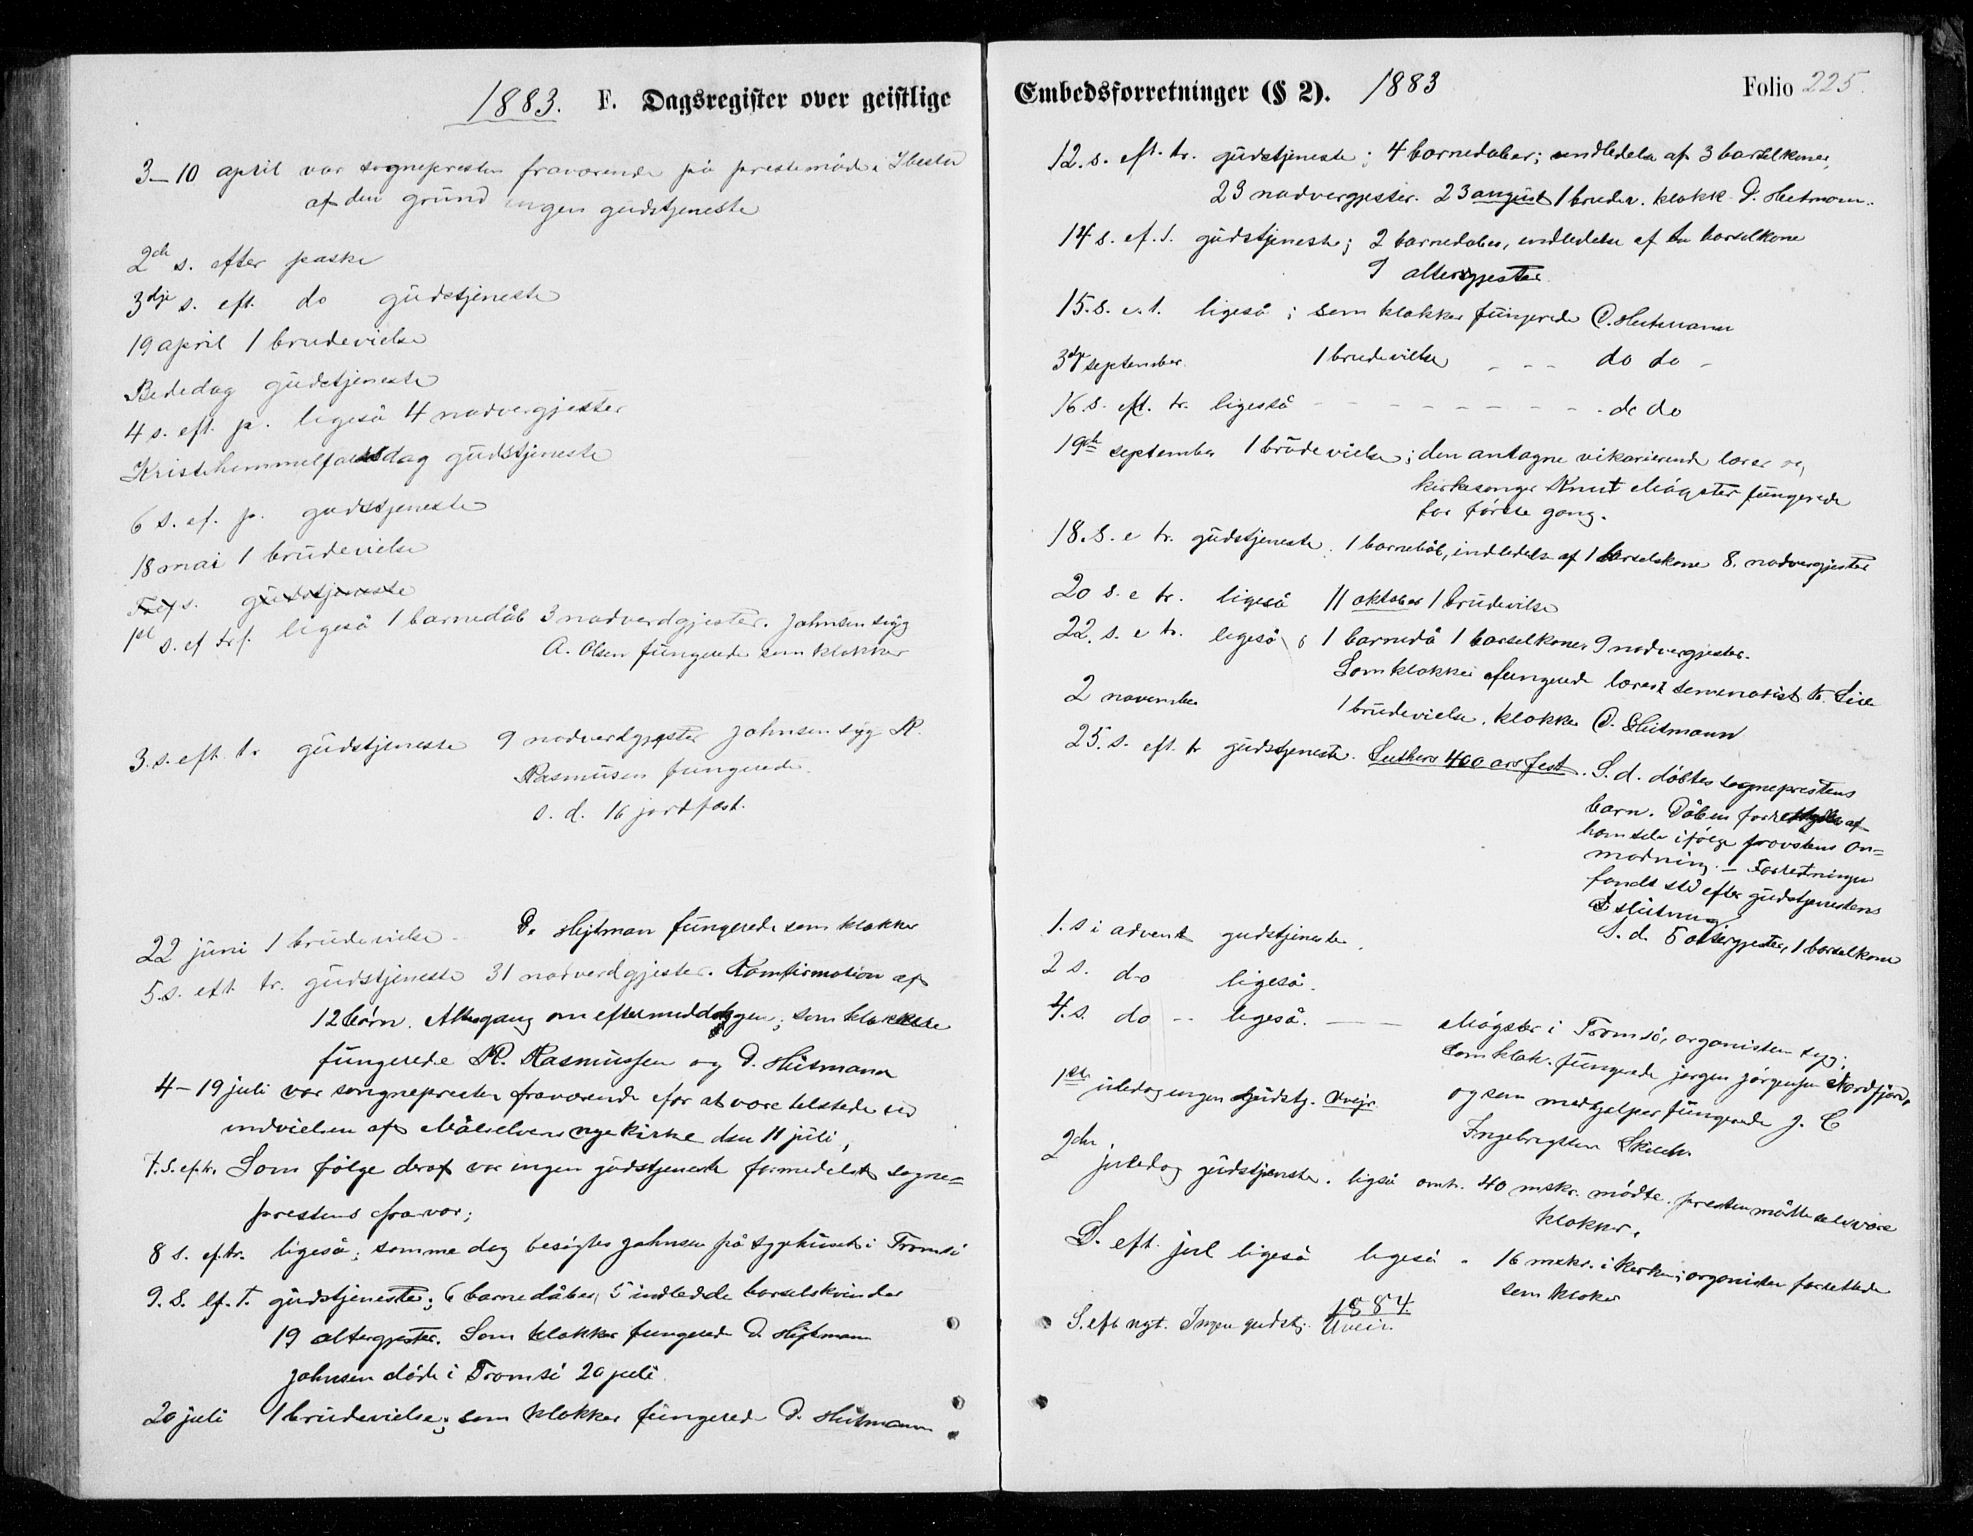 1883. F. Dagsregister over geistlige
3–10 april var sognepresten fraværende på prestemöde i Ibestad
af den grund ingen gudstjeneste
2den s. efter paske
3dje s. eft. do gudstjeneste
19 april 1 brudevielse
Bededag gudstjeneste
4 s. eft. p. ligeså 4 nadvergjester
Kristihimmelfartsdag gudstjeneste
6 s. ef. p. gudstjeneste
18 mai 1 brudevielse
s. gudstjeneste
1st s. ef trf. ligeså 1 barnedåb 3 nadverdgjester. Johnsen syg
A. Olsen fungerede som klokker
3. s. eft. tr gudstjeneste 9 nadverdgjester Johnsen syg R.
Rasmusen fungerede.
s. d. 16 jordfæst.
22 juni 1 brudevielse – D. Hejtman fungerede som klokker
5. s. eft. tr. gudstjeneste 31 nadverdgjester. Konfirmation af
12 börn. Altergang om eftermiddagen; som klokkere
fungerede R. Rasmussen og D. Heitmann
4–19 juli var songnepresten fraværende for at være tilstede ved
indvielsen af Målselvens nye kirke den 11 juli,
7. S. ef. tr. Som fölge deraf var ingen gudstjeneste formedelst sogne=
prestens fravær;
8 s. ef. tr. ligeså; samme dag besögtes Johnsen på sygehuset i Tromsö
9. S. ef. T. gudstjeneste; 6 barnedåber, 5 indledede barselskvinder
19 altergjester. Som klokker fungerede D. Hejtmann
Johnsen döde i Tromsö 20 juli.
20 juli 1 brudevielse; som klokker fungerede D. Heitmann
Embedsforretninger (§ 2). 1883 Folio 225.
12. s. eft. tr. gudstjeneste; 4 barnedaber; indledelse af 3 barselkoner,
23 nadvergjester. 23 august 1 brudev. klokk. D. Heitmann.
14 s. ef. t. gudstjeneste; 2 barnedaber, indledelse af barselkone
9 altergjester.
15. s. e. t. ligeså; som klokker fungerede D. Heitmann
3dje september. 1 brudevielse – – – do do –
16. s. eft. tr. ligeså – – – – – – – – – do do
19de september 1 brudevielse; den antagne vikarierende lærer og
kirkesanger Knut Mögster fungerede
for förste gang.
18. S. e tr. gudstjeneste. 1 barnedåb, indledelse af 1 barselskone 8. nadvergjester
20 s. e tr. ligeså 11 oktober 1 brudevilse
22. s. e tr. ligeså 1 barnedå 1 barselkoner 9 nadvergjester.
Som klokker fungerede lærer seminarist
2 november 1 brudevielse. klokker D. Heitmann
25. s. eft. tr gudstjeneste. Luthers 400 års fest. S. d. döbtes sogneprestens
barn. Dåben forrettedes af
ham selv ifölge provstens an=
modning. – Forretningen
fandt sted efter gudstjenestens
slutning
S. d. 5 altergjester, 1 barselkone
1. s i advent gudstjeneste.
2 s. do ligeså.
4. s. do – ligeså. – – Mögster i Tromsö, organisten syg;
som klok. fungerede Jörgen Jörgensen Nordfjord,
1ste juledag ingen gudstj. uvejr. og som medhjelper fungerede J. C
Ingebrigtsen
2den juledag gudstjeneste. ligeså omtr. 40 mskr. mödte. presten måtte selv være
klokker.
S. eft. jul ligeså ligeså. 16 mskr. i kirken; organisten forrettede
som kloker
1884.
S. eft nyt. Ingen gudstj. Uveir.